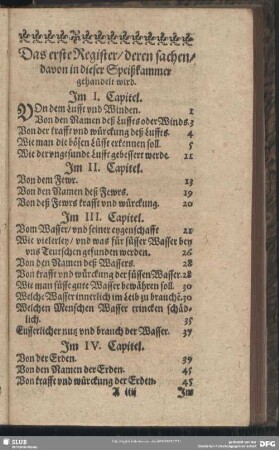 Das erste Register/ deren sachen/
davon in dieser Speißkammer
gehandelt wird.
Im I. Capitel.
VOn dem Lufft vnd Winden. 1
Von den Namen deß Luffts oder Winds. 3
Von der krafft vnd würckung deß Luffts. 4
Wie man die bösen Lüfft erkennen soll. 5
Wie der vngesunde Lufft gebessert werde. 11
Im II. Capitel.
Von dem Fewr. 13
Von den Namen deß Fewrs. 19
Von deß Fewrs krafft vnd würckung. 20
Im III. Capitel.
Vom Wasser/ vnd seiner eygenschafft 21
Wie vielerley/ vnd was für süsser Wasser bey
vns Teutschen gefunden werden. 26
Von den Namen deß Wassers. 28
Von krafft vnd würckung der süssen Wasser. 28
Wie man süsse gute Wasser bewähren soll. 30
Welche Wasser innerlich im Leib zu brauchē. 30
Welchen Menschen Wasser trincken schäd-
lich. 35
Eusserlicher nutz vnd brauch der Wasser. 37
Im IV. Capitel.
Von der Erden. 39
Von den Namen der Erden. 45
Von krafft vnd würckung der Erden. 45
A iiij Im
SLUB
DFG